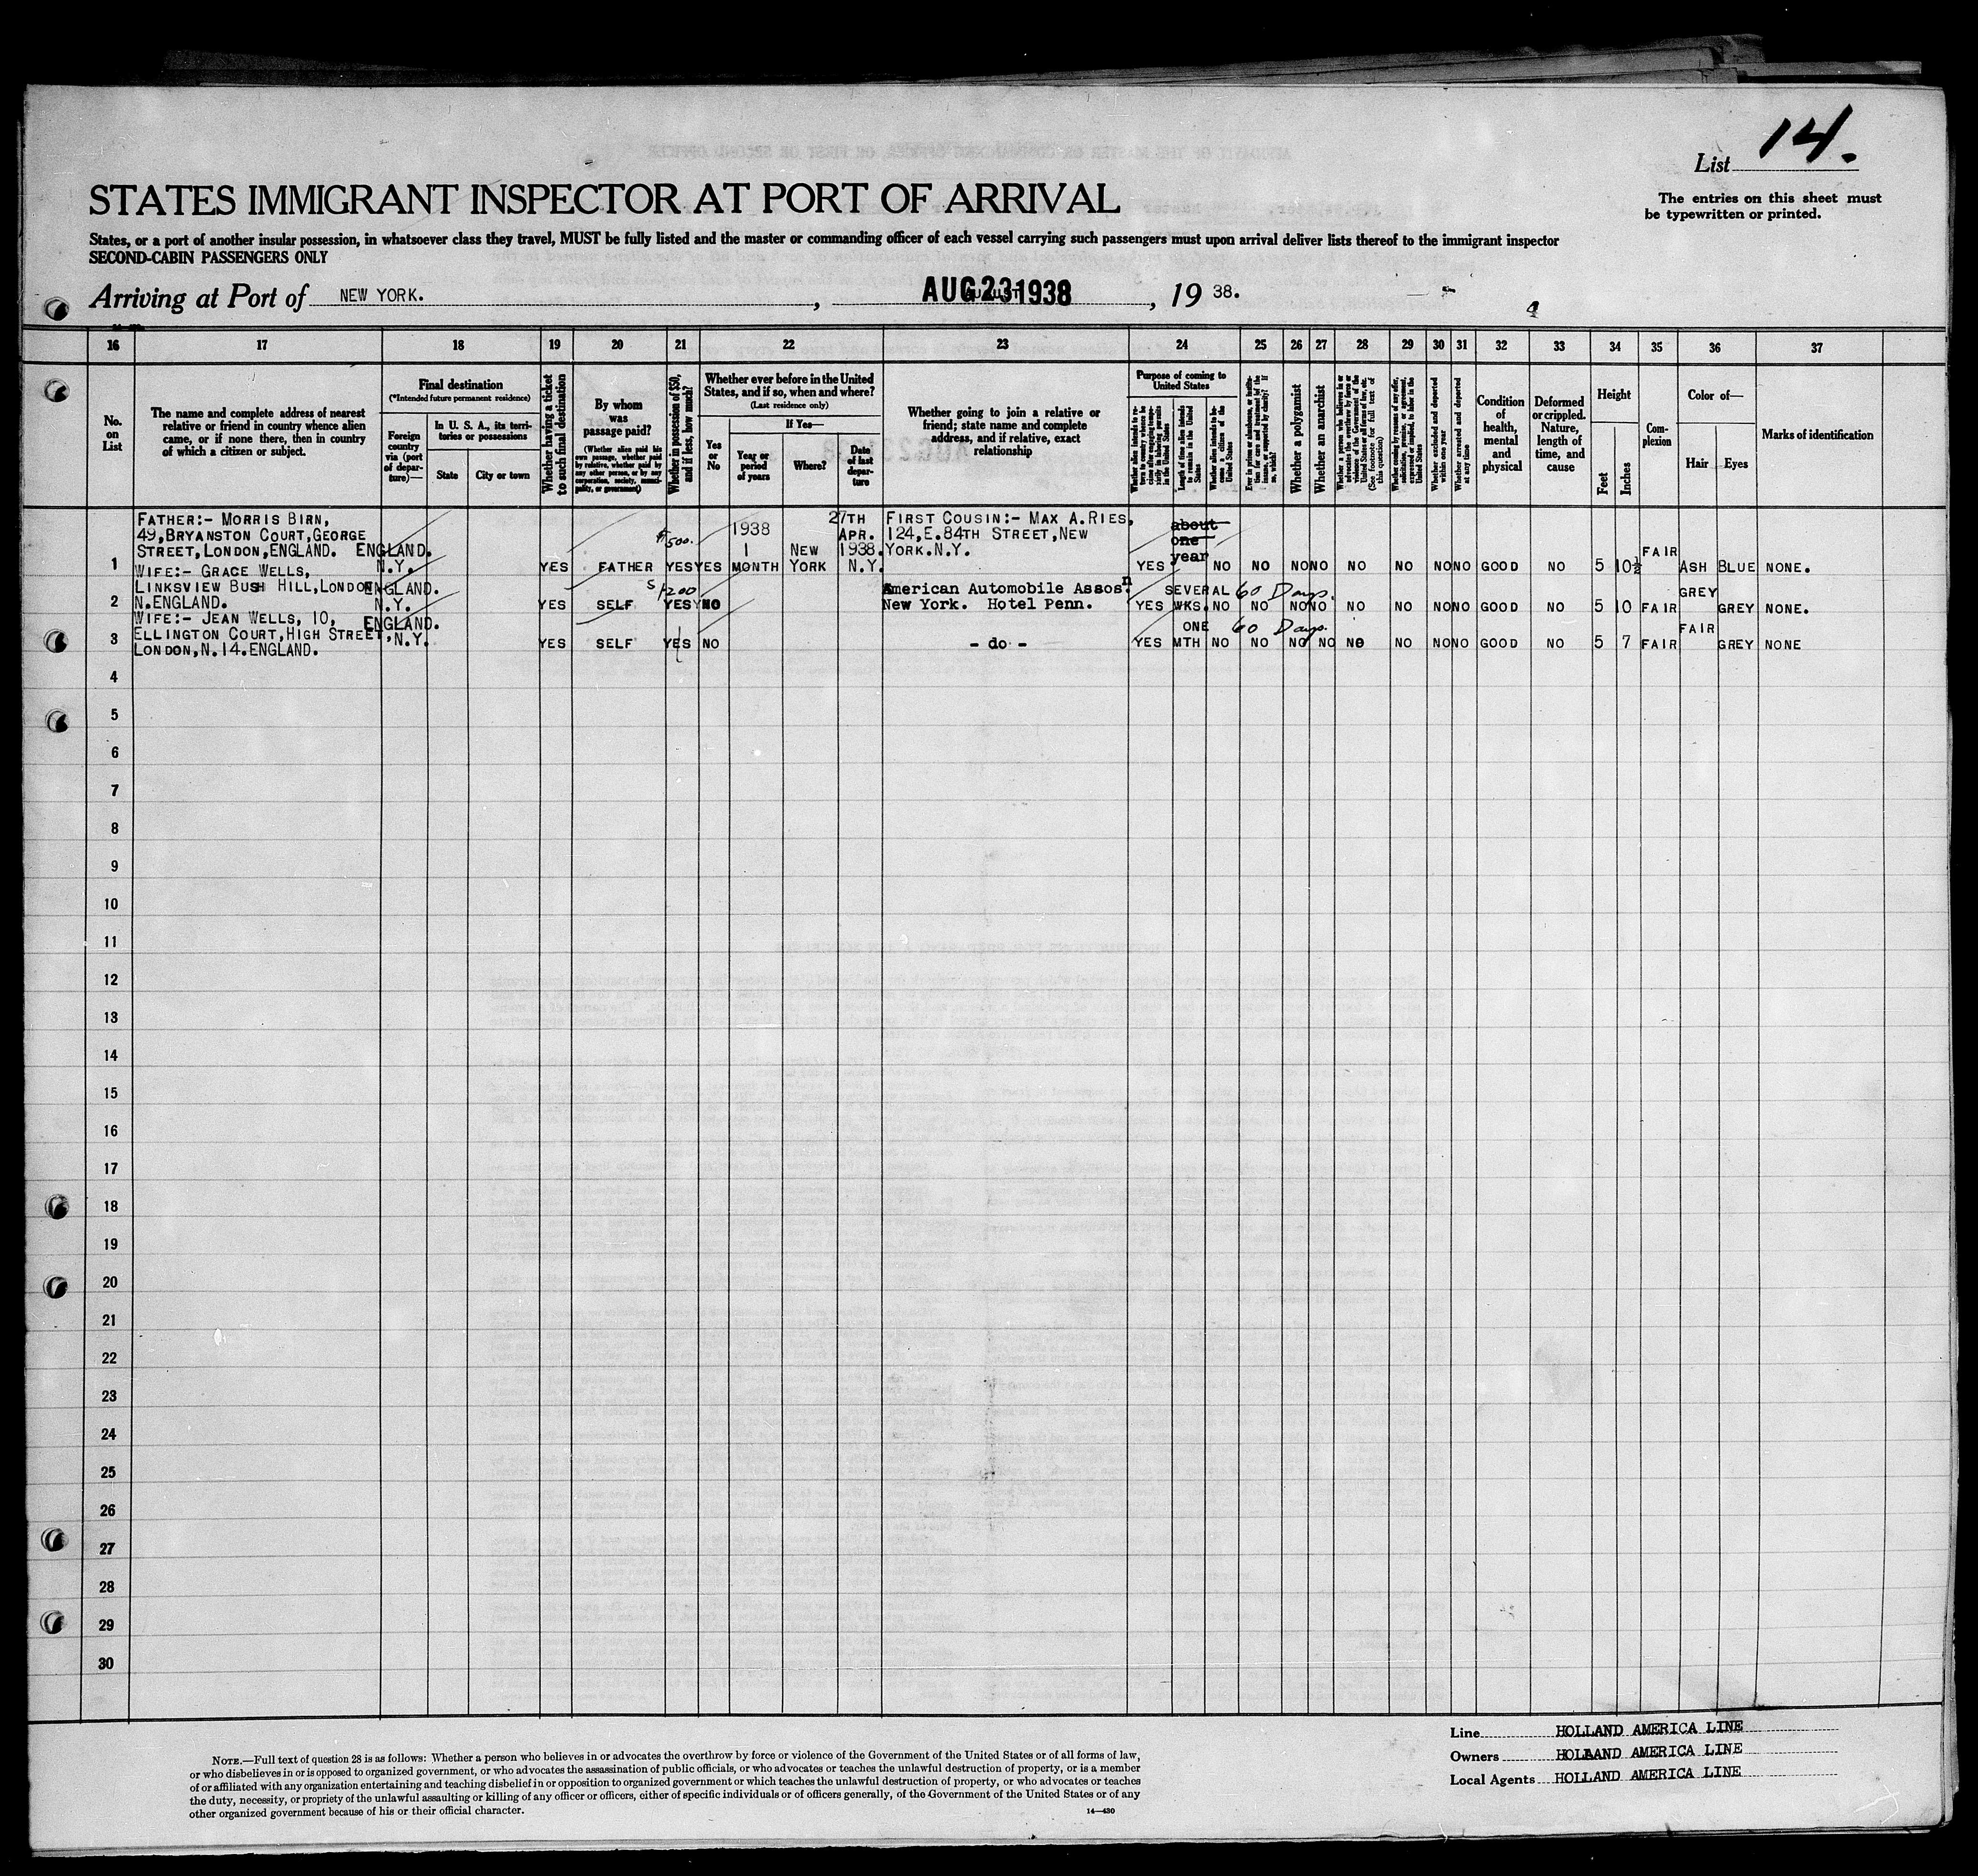 List 14.
The entries on this sheet must
be typewritten or printed.
STATES IMMIGRANT INSPECTOR AT PORT OF ARRIVAL
States, or a port of another insular possession, in whatsoever class they travel, MUST be fully listed and the master or commanding officer of each vessel carrying such passengers must upon arrival deliver lists thereof to the immigrant inspector
SECOND-CABIN PASSENGERS ONLY
Arriving at Port of NEW YORK. , AUG 23 1938 , 19 38.
16 17 18 19 20 21 22 23 24 25 26 27 28 29 30 31 32 33 34 35 36 37
No.
on
List
The name and complete address of nearest
relative or friend in country whence alien
came, or if none there, then in country
of which a citizen or subject.
Final destination
(*Intended future permanent residence)
Foreign
country
via (port
of depar-
ture)—
In U. S. A., its terri-
tories or possessions
State
City or town
Whether having a ticket
to such final destination
By whom
was
passage paid?
(Whether alien paid his
own passage, whether paid
by relative, whether paid by
any other person, or by any
corporation, society, munici-
pality, or government)
Whether in possession of $50,
and if less, how much?
Whether ever before in the United
States, and if so, when and where?
(Last residence only)
Yes
or
No
If Yes—
Year or
period
of years
Where?
Date
of last
depar-
ture
Whether going to join a relative or
friend; state name and complete
address, and if relative, exact
relationship
Purpose of coming to
United States
Length of time alien intends
to remain in the United
States
Whether alien intends to be-
come a citizen of the
United States
Whether a polygamist
Whether an anarchist
(See footnote for full text of
this question)
Whether excluded and deported
within one year
Whether arrested and deported
at any time
Condition
of
health,
mental
and
physical
Deformed
or crippled.
Nature,
length of
time, and
cause
Height
Feet
Inches
Com-
plexion
Color of—
Hair
Eyes
Marks of identification
1 FATHER:- MORRIS BIRN,
49, BRYANSTON COURT, GEORGE
STREET, LONDON, ENGLAND. ENGLAND. N.Y. YES FATHER $500. YES YES 1938 1 MONTH NEW YORK 27TH APR. 1938. N.Y. FIRST COUSIN:- MAX A. RIES,
124, E. 84TH STREET, NEW
YORK. N.Y. YES about one year NO NO NO NO NO NO NO NO GOOD NO 5 10½ FAIR ASH BLUE NONE.
2 WIFE:- GRACE WELLS,
LINKSVIEW BUSH HILL, LONDON
N. ENGLAND. ENGLAND. N.Y. YES SELF $1200 YES NO American Automobile Assosn.
New York. Hotel Penn. YES SEVERAL WKS. 60 Days. NO NO NO NO NO NO NO NO GOOD NO 5 10 FAIR GREY GREY NONE.
3 WIFE:- JEAN WELLS, 10,
ELLINGTON COURT, HIGH STREET,
LONDON, N.14. ENGLAND. ENGLAND. N.Y. YES SELF YES NO - do - YES ONE MTH 60 Days. NO NO NO NO NO NO NO NO GOOD NO 5 7 FAIR FAIR GREY NONE
4
5
6
7
8
9
10
11
12
13
14
15
16
17
18
19
20
21
22
23
24
25
26
27
28
29
30
NOTE.—Full text of question 28 is as follows: Whether a person who believes in or advocates the overthrow by force or violence of the Government of the United States or of all forms of law,
or who disbelieves in or is opposed to organized government, or who advocates the assassination of public officials, or who advocates or teaches the unlawful destruction of property, or is a member
of or affiliated with any organization entertaining and teaching disbelief in or opposition to organized government or which teaches the unlawful destruction of property, or who advocates or teaches
the duty, necessity, or propriety of the unlawful assaulting or killing of any officer or officers, either of specific individuals or of officers generally, of the Government of the United States or of any
other organized government because of his or their official character.
14—430
Line HOLLAND AMERICA LINE
Owners HOLLAND AMERICA LINE
Local Agents HOLLAND AMERICA LINE